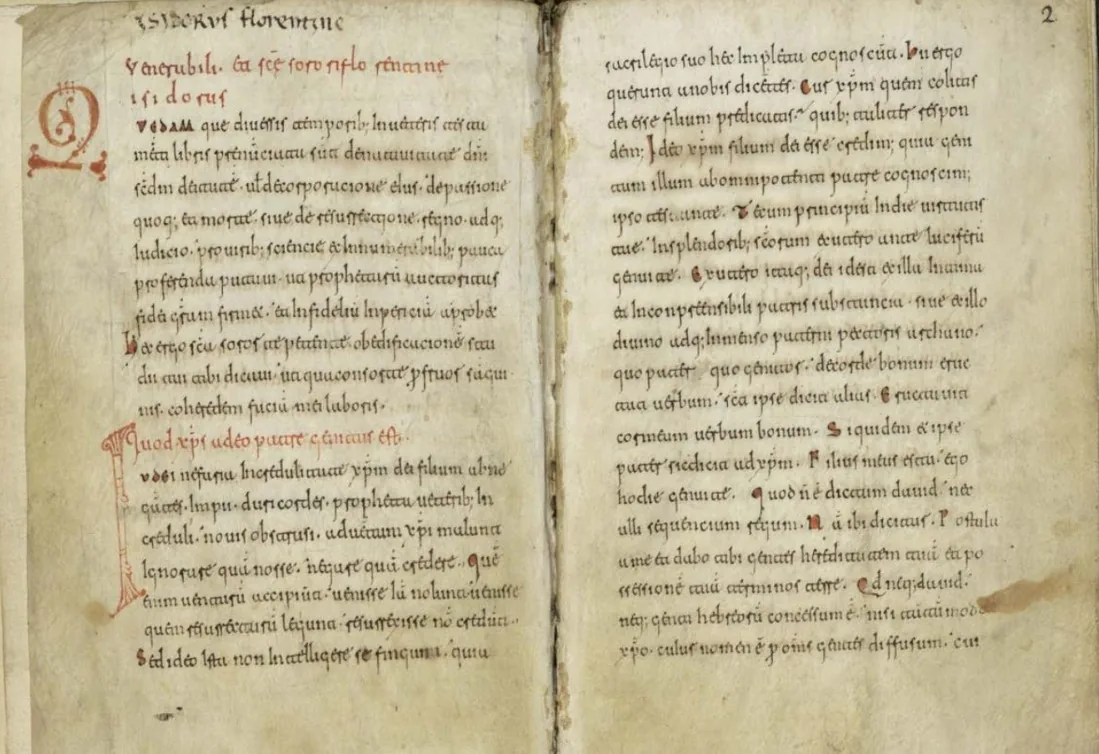 ISIDORUS florentine
Venerabili. et scę sorori florentine
isidorus
QUEDAM que diuersis temporib; In ueteris testa
mēti libris prenūciata sūt de natiuitate dn̄i
scđm deitatē. ul̄ de corporacione eius. de passione
quoq; et morte. siue de resurrectione. regno. adq;
Iudicio. pro uirib; sciencie ex Innumerabilib; pauca
proferenda putaui. ut prophetarū auctoritas
fidei gr̄am firmet. et Infideliū Inpericiā aprobet
Hec ergo sc̄a soror te petente. ob edificacionē stu
dii tui tibi dicaui. ut qua consorte p̱fruor sāgui
nis. coheredem faciā mei laboris.
Quod xp̄s a deo patre genitus est.
IUDEI nefaria Incredulitate xp̄m dei filium abne
gātes. Impii. duri cordes. prophetis ueterib; In
creduli. nouis obstrusi. aduētum xp̄i malunt
Ignorare quā nosse. negare quā credere. Quē
enim uenturū accipiūt. uenisse Iā nolunt. uenisse
quem resurrecturū legunt. resurrexisse nō credūt.
Sed ideo Ista non Intelligere se fingunt. quia
2
sacrilegio suo hec Impleta cognoscūt. Hii ergo
querunt a nobis dicētes. Cur xp̄m quem colitis
dei esse filium predicatis. quib; taliter respon
dem; Ideo xp̄m filium dei esse credim; quia gen
itum illum ab omnipotenti patre cognoscim;
ipso testante. Tecum principiū In die uirtutis
tue. In splendorib; sc̄orum ex utero ante luciferū
genui te. Ex utero itaq; dei id est ex illa Intima
et Inconprensibili patris substancia. siue ex illo
diuino adq; Inmenso paterni pectoris archano.
quo pater quo genitor. de corde bonum eruc
tat uerbum. sic̄ ipse dicit alias. Eructauit
cor meum uerbum bonum. Siquidem et ipse
pater sic dicit ad xp̄m. Filius meus es tu. ego
hodie genui te. Quod n̄ ē dictum dauid. nec
ulli sequencium regum. Nā ibi dicitur. Postula
a me et dabo tibi gentes hereditatem tuā. et po
sessionē tuā terminos terre. Qđ neq; dauid.
neq; genti hebreorū concessum ē. nisi tantūmodo
xp̄o. cuius nomen ē p̱ om̄s gentes diffusum. cui